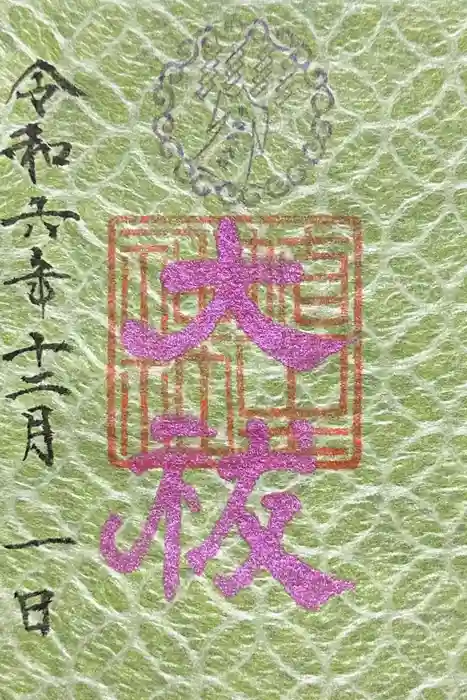 大祓
令和六年十二月一日